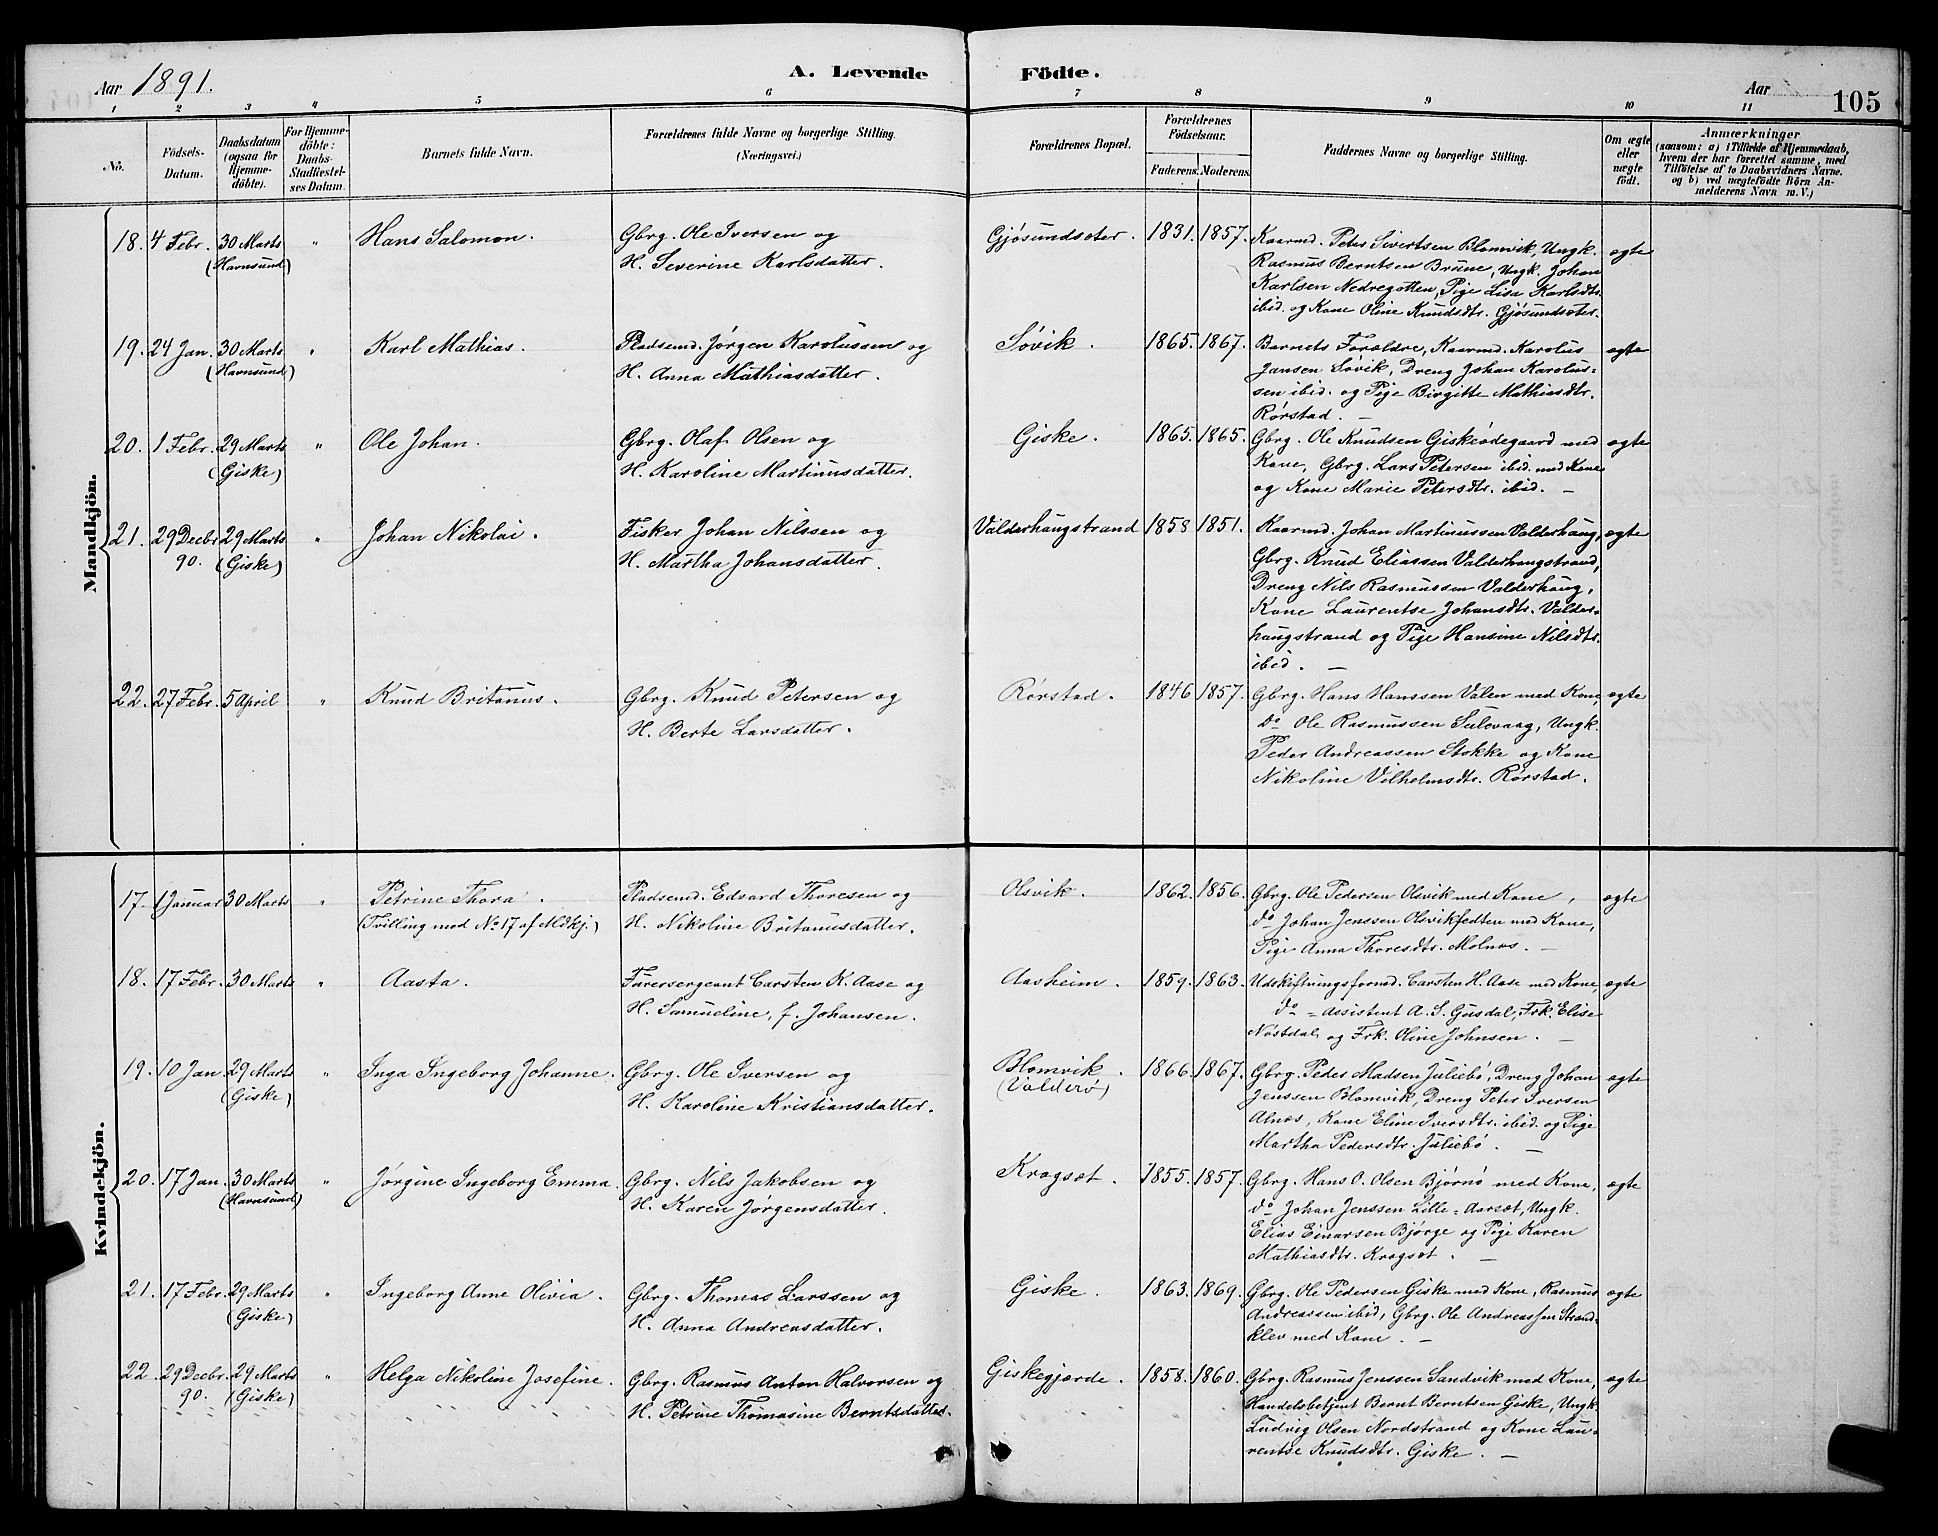 Aar 1891.
A. Levende Födte.
Aar
105
1 2 3 4 5 6 7 8 9 10 11
No.
Födsels-Datum.
Daabsdatum (ogsaa for Hjemmedöbte).
For Hjemmedöbte: Daabs-Stadfæstelses Datum.
Barnets fulde Navn.
Forældrenes fulde Navne og borgerlige Stilling.
(Næringsvei.)
Forældrenes Bopæl.
Forældrenes Födselsaar.
Faderens. Moderens.
Faddernes Navne og borgerlige Stilling.
Om ægte eller uægte födt.
Anmærkninger
(saasom: a) i Tilfælde af Hjemmedaab,
hvem der har forrettet samme, med
Tilföielse af to Daabsvidners Navne.
og b) ved uægtefödte Börn An-
melderens Navn m. V.)
Mandkjön.
18. 4 Febr. 30 Marts (Havnsund) " Hans Salomon.
Gbrg. Ole Iversen og
H. Severine Karlsdatter.
Gjøsundsæter. 1831. 1857.
Kaarmd. Peter Sivertsen Blomvik, Ungk.
Rasmus Berntsen Brune, Ungk. Johan
Karlsen Nedregotten, Pige Lisa Karlsdtr.
ibid. og Kone Oline Knudsdtr. Gjøsundsæter.
ægte
19. 24 Jan. 30 Marts (Havnsund) " Karl Mathias.
Pladsemd. Jørgen Karolussen og
H. Anna Mathiasdatter.
Søvik. 1865. 1867.
Barnets Forældre, Kaarmd. Karolus
Jansen Søvik, Dreng Johan Karolus-
sen ibid. og Pige Birgitte Mathiasdtr.
Rørstad. —
ægte
20. 1 Febr. 29 Marts (Giske) " Ole Johan.
Gbrg. Olaf Olsen og
H. Karoline Martinusdatter.
Giske. 1865. 1865.
Gbrg. Ole Knudsen Giskeødegaard med
Kone, Gbrg. Lars Petersen ibid. med Kone
og Kone Marie Petersdtr. ibid. —
ægte
21. 29 Decbr. 90. 29 Marts (Giske) " Johan Nikolai.
Fisker Johan Nilssen og
H. Martha Johansdatter.
Valderhaugstrand 1858 1851.
Kaarmd. Johan Martinussen Valderhaug,
Gbrg. Knud Eliassen Valderhaugstrand,
Dreng Nils Rasmussen Valderhaug,
Kone Laurentse Johansdtr. Valder-
haugstrand og Pige Hansine Nilsdtr.
ibid. —
ægte
22. 27 Febr. 5 April " Knud Britanus.
Gbrg. Knud Petersen og
H. Berte Larsdatter.
Rørstad. 1846 1857.
Gbrg. Hans Hanssen Valen med Kone,
do Ole Rasmussen Sulevaag, Ungk.
Peder Andreassen Stokke og Kone
Nikoline Vilhelmsdtr. Rørstad.
ægte
Kvindekjön.
17. 1 Januar 30 Marts " Petrine Thora.
(Tvilling med No 17 af Mdkj.)
Pladsemd. Edvard Thoresen og
H. Nikoline Britanusdatter.
Olsvik. 1862. 1856.
Gbrg. Ole Pedersen Olsvik med Kone,
do Johan Jenssen Olsvikfedten med Kone,
Pige Anna Thoresdtr. Molnæs. —
ægte
18. 17 Febr. 30 Marts " Aasta.
Furersergeant Carsten K. Aase og
H. Samueline, f. Johansen.
Aasheim. 1859. 1863.
Udskiftningsformd. Carsten H. Aase med Kone,
do - assistent A. S. Gusdal, Frk. Elise
Nøstdal og Frk. Oline Johnsen. —
ægte
19. 10 Jan. 29 Marts (Giske) " Inga Ingeborg Johanne.
Gbrg. Ole Iversen og
H. Karoline Kristiansdatter.
Blomvik. (Valderø) 1866. 1867.
Gbrg. Peder Madsen Juliebø, Dreng Johan
Jenssen Blomvik, Dreng Peter Iversen
Alnæs, Kone Eline Iversdtr. ibid. og Pige
Martha Pedersdtr. Juliebø. —
ægte
20. 17 Jan. 30 Marts (Havnsund) " Jørgine Ingeborg Emma.
Gbrg. Nils Jakobsen og
H. Karen Jørgensdatter.
Krogsæt. 1855. 1857.
Gbrg. Hans O. Olsen Bjørnø med Kone,
do Johan Jenssen Lille-Aarsæt, Ungk.
Elias Einarsen Bjørge og Pige Karen
Mathiasdtr. Krogsæt. —
ægte
21. 17 Febr. 29 Marts (Giske) " Ingeborg Anne Olivia.
Gbrg. Thomas Larssen og
H. Anna Andreasdatter.
Giske. 1863. 1869.
Gbrg. Ole Pedersen Giske med Kone, Rasmus
Andreassen ibid, Gbrg. Ole Andreassen Strand-
klev med Kone. —
ægte
22. 29 Decbr. 90. 29 Marts (Giske) " Helga Nikoline Josefine.
Gbrg. Rasmus Anton Halvorsen og
H. Petrine Thomasine Berntsdatter.
Giskegjærde. 1858. 1860.
Gbrg. Rasmus Jenssen Sandvik med Kone,
Handelsbetjent Bernt Berntsen Giske, Ungk.
Ludvig Olsen Nordstrand og Kone Lau-
rentse Knudsdtr. Giske. —
ægte